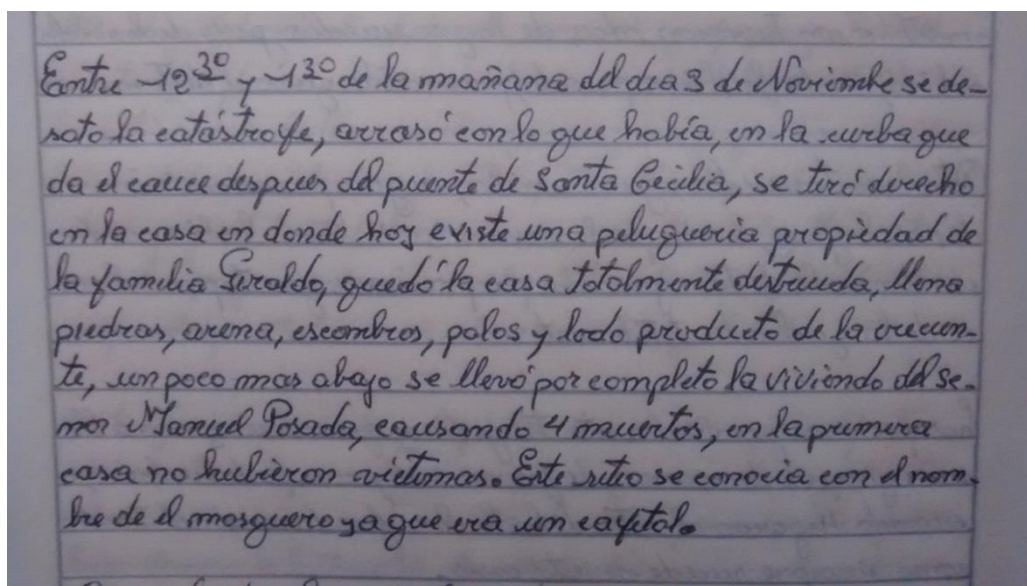 Entre 12³⁰ y 1³⁰ de la mañana del dia 3 de Noviembre se de-
sato la catástrofe, arrasó con lo que había, en la curba que
da el cauce despues del puente de Santa Cecilia, se tiró derecho
en la casa en donde hoy existe una peluqueria propiedad de
la familia Giraldo, quedó la casa totalmente destruida, llena
piedras, arena, escombros, palos y lodo producto de la crecien-
te, un poco mas abajo se llevó por completo la vivienda del se-
ñor Manuel Posada, causando 4 muertos, en la primera
casa no hubieron victimas. Este sitio se conocia con el nom-
bre de el mosquero ya que era un cafetal.